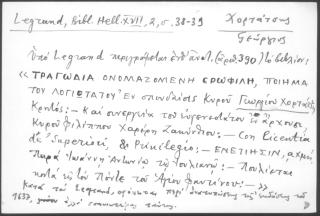 Legrand, Bibl. Hell. XVII, 2, σ. 38-39
Χορτάτσης
Γεώργιος
Ὑπὸ Legrand περιγράφεται ἐνθ' ἀνωτ. (ἀριθ. 390) τὸ βιβλίον:
« ΤΡΑΓΩΔΙΑ ΟΝΟΜΑΖΟΜΕΝΗ ΕΡΩΦΙΛΗ, ΠΟΙΗΜΑ
ΤΟΥ ΛΟΓΙΩΤΑΤΟΥ ἐν σπουδαίοις Κυροῦ Γεωργίου Χορτάτζη
Κρητός: – Καὶ συνεργία τοῦ εὐγενεστάτου ἐξ ἄρχοντος
Κυροῦ Φιλίππου Χαρέρη Ζακύνθου: – Con licentia
de Superiori, & Privilegio: – ΕΝΕΤΙΗΣΙΝ,
Παρὰ Ἰωάννῃ Ἀντωνίῳ τῷ Ἰουλιανῷ: – Πουλιέται
κατὰ τὸ Πόντε τοῦ Ἁγίου Φαντίνου: – »
Κατὰ τὸν Legrand, περὶ τῆς ἐκδόσεως τοῦ
1637,